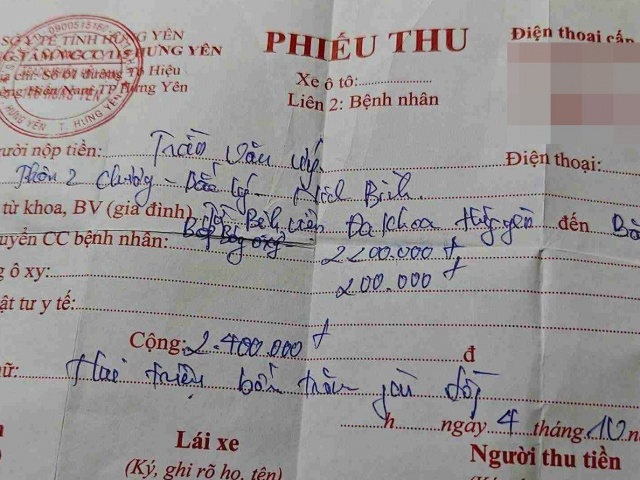 SỞ Y TẾ TỈNH HƯNG YÊN
TÂM VCCC 115 HƯNG YÊN
Địa chỉ: Số 01 đường Tô Hiệu
Hiến Nam, TP Hưng Yên
PHIẾU THU
Điện thoại cấp
Xe ô tô:
Liên 2: Bệnh nhân
gười nộp tiền: Trần Văn
Điện thoại:
Thôn 2 Chương - Bắc Lý - Bình
từ khoa, BV (gia đình) Từ Bệnh viện Đa khoa Hưng Yên đến
uyển CC bệnh nhân: 2200.000 đ
g ô xy: 200.000 đ
ật tư y tế:
Cộng: 2.400.000 đ đ
ữ: Hai triệu bốn trăm đồng
h ngày 4 tháng 10 n
Lái xe
(Ký, ghi rõ họ, tên)
Người thu tiền